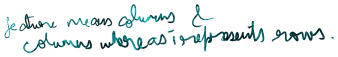 feature means columns &
columns whereas i represents rows.